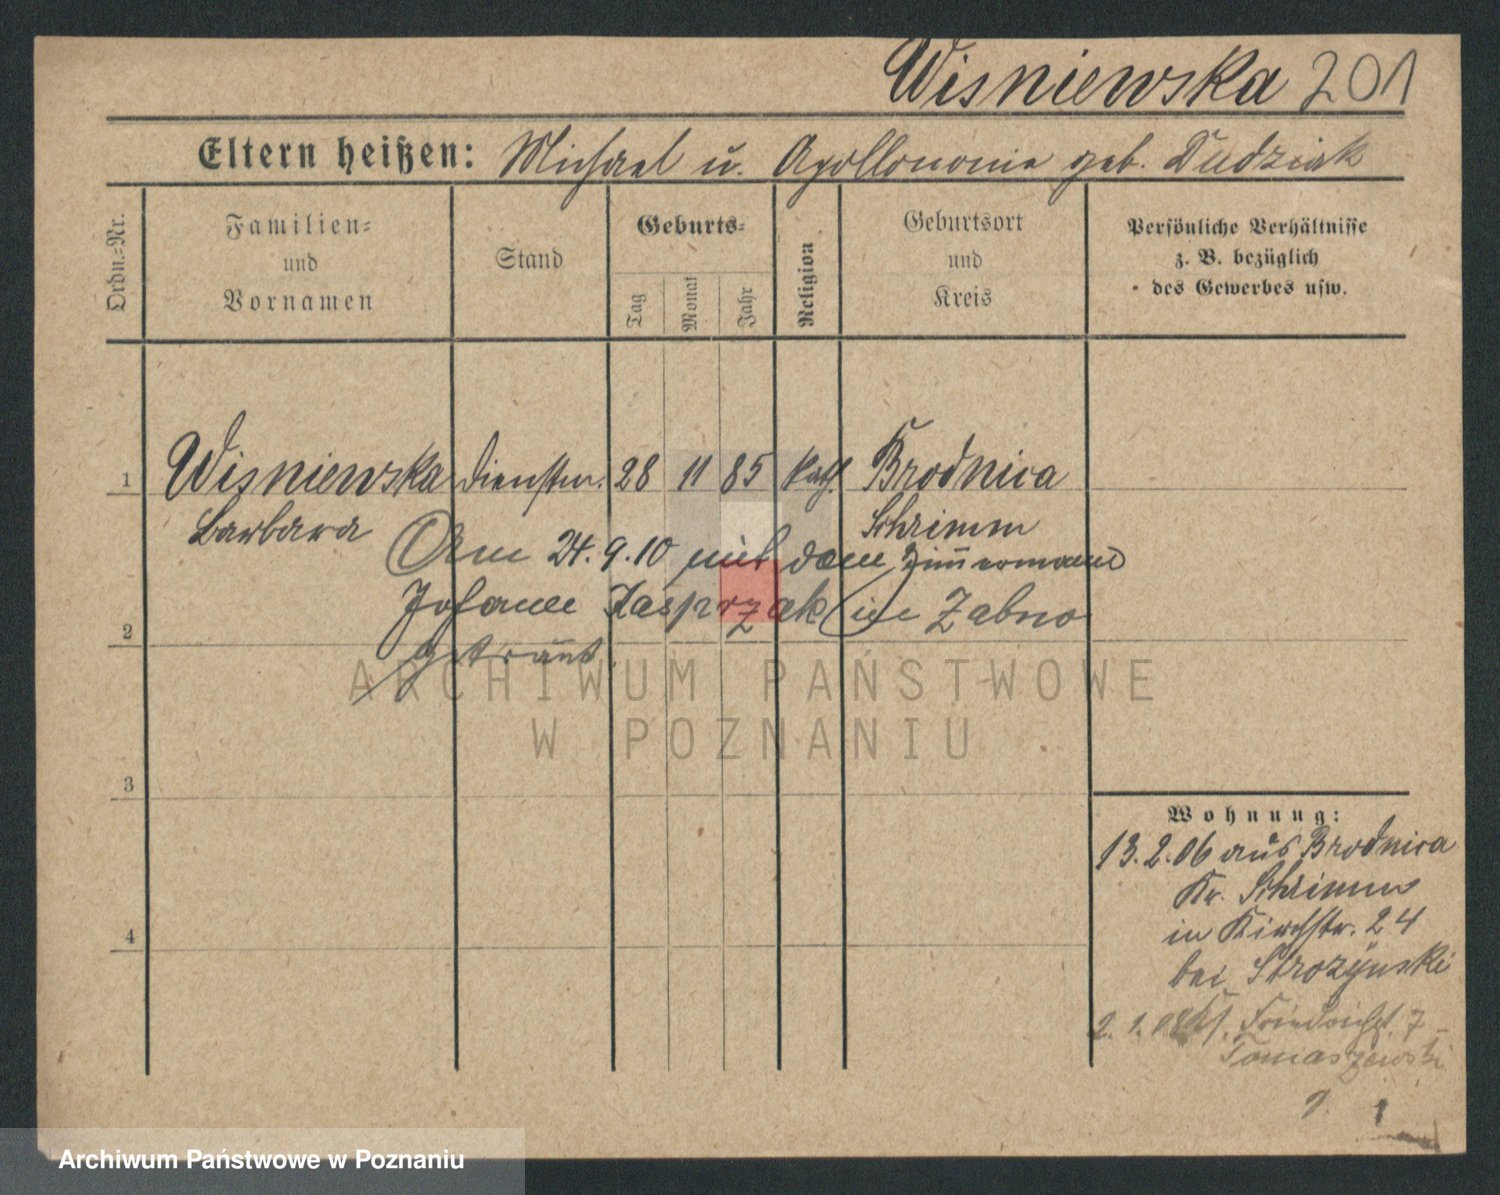 Wisniewska 201
Eltern heißen: Michael u. Apollonia geb. Dudziak
Ordn.-Nr.
Familien-
und
Vornamen
Stand
Geburts-
Tag
Monat
Jahr
Religion
Geburtsort
und
Kreis
Persönliche Verhältnisse
z. B. bezüglich
des Gewerbes usw.
1 Wisniewska dienstm. 28 11 85 kath. Brodnica
Barbara Schrimm
Am 24.9.10 mit dem Zimmermann
Johann Kasprzak in Zabno
2
getraut.
3
4
Wohnung:
13.2.06 aus Brodnica
Kr. Schrimm
in Kirchstr. 24
bei Strozynski
2.1.08 Friedrichst. 7
Tomaszewski
ARCHIWUM PAŃSTWOWE
W POZNANIU
Archiwum Państwowe w Poznaniu